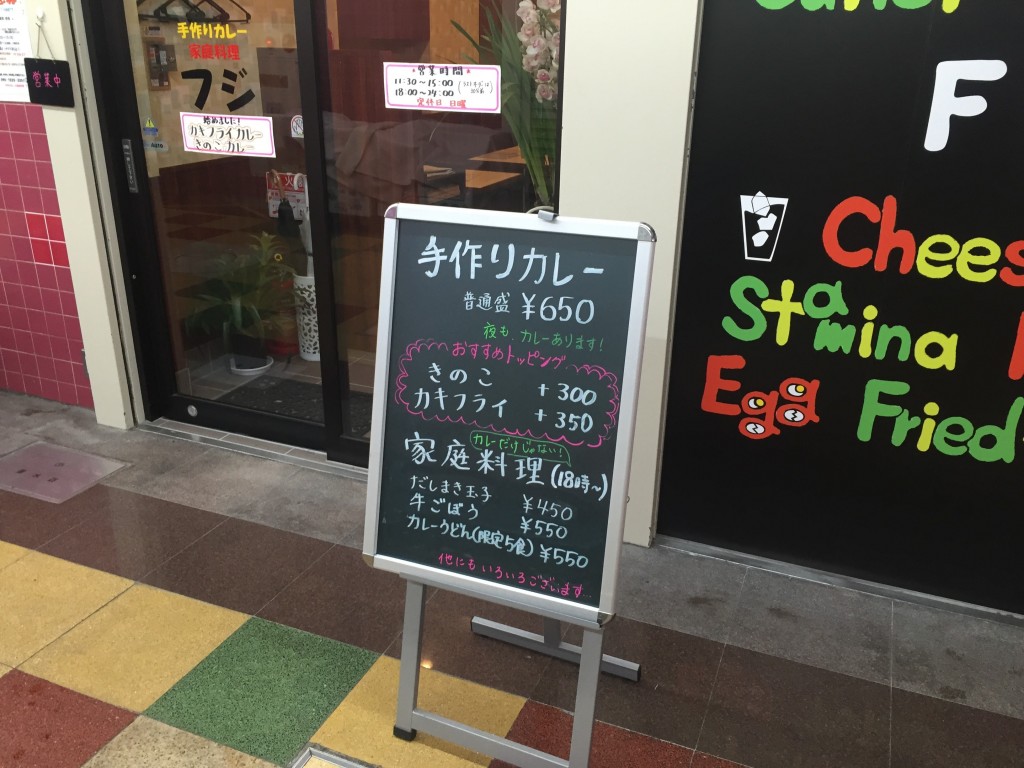 営業中
手作りカレー
家庭料理
フジ
始めました!
カキフライカレー
きのこカレー
営業時間
11:30~15:00
18:00~24:00
定休日 日曜
手作りカレー
普通盛 ¥650
夜も、カレーあります!
おすすめトッピング
きのこ +300
カキフライ +350
カレーだけじゃない!
家庭料理(18時~)
だしまき玉子 ¥450
牛ごぼう ¥550
カレーうどん(限定5食) ¥550
他にもいろいろございます…
F
Chees
Stamina
Egg Fried